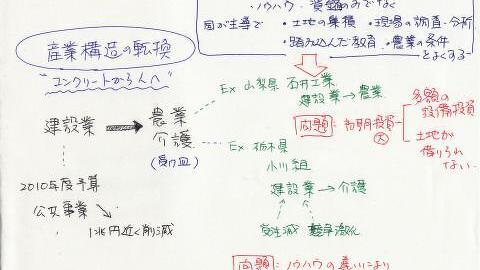 ノウハウ・資金のみでなく
国が主導で ・土地の集積 ・現場の調査・分析
・踏み込んだ教育 ・農業の条件
をよくする
産業構造の転換
"コンクリートから人へ"
建設業 → 農業
介護
(受け皿)
2010年度予算
公共事業 ↘
1兆円近く削減
Ex 山梨県 石井工業
建設業→農業
問題 = 初期投資
大
多額の
設備投資
土地が
借りられ
ない
Ex 栃木県
小川組
建設業→介護
発注減 競争激化
問題:ノウハウの違いにより